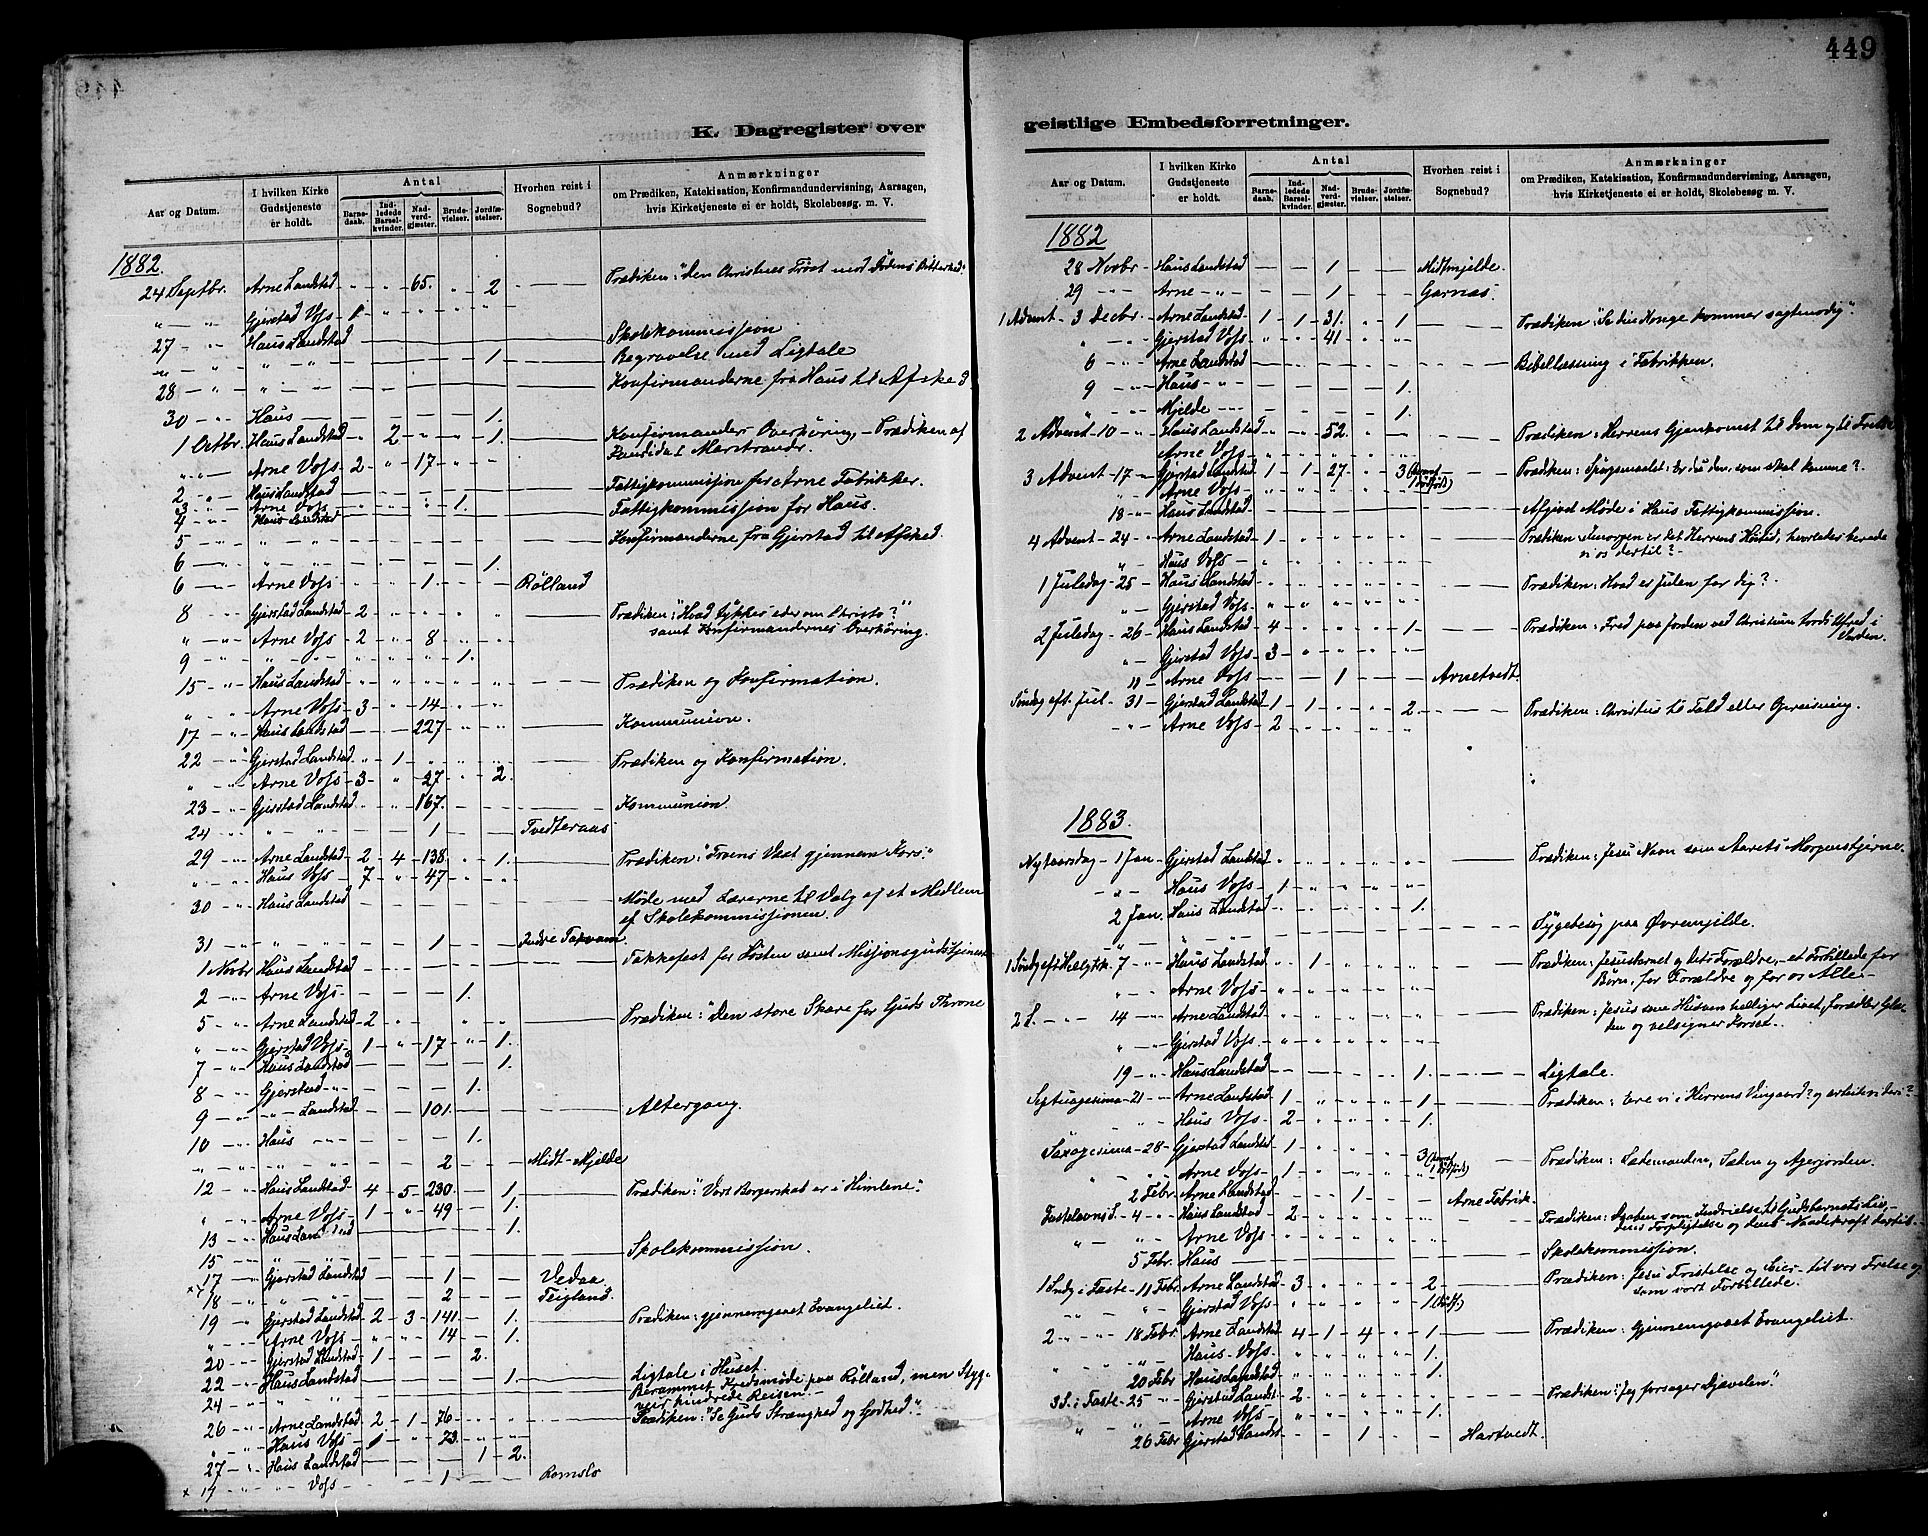 449
K. Dagregister over
Aar og Datum.
I hvilken Kirke Gudstjeneste er holdt.
Antal
Barne-daab. Ind-ledede Barsel-kvinder. Nad-verd-gjæster. Brude-vielser. Jordfæ-stelser.
Hvorhen reist i Sognebud?
Anmærkninger
om Prædiken, Katekisation, Konfirmandundervisning, Aarsagen,
hvis Kirketjeneste ei er holdt, Skolebesøg m. V.
1882.
24 Septbr. Arne Landstad - " " 65. " 2 — Prædiken: "Den Christnes Trøst mod Dødens Bitterhed."
" — " Gjerstad Voss - 1 - " " " "
27 — " Haus Landstad — — — — — — Skolekommission
" — " " — " — — — — 1. — Begravelse med Ligtale
28 — " " — " — — — — — — Konfirmanderne fra Haus til Afsked.
30 — " Haus — — — — — 1.
1 Octbr. Haus Landstad - " 2 - " " 1. — Konfirmanders Overhöring, — Prædiken af
Kandidat Merstrandr.
" " Arne Voss - 2 " 17 " "
2 " Haus Landstad — — — — — — Fattigkommission for Arne Fabrikker.
3 " Arne Voss - " " " 1. "
4 " Haus Landstad — — — — — — Fattigkommission for Haus.
5 — " " — " — — — — — — Konfirmanderne fra Gjerstad til Afsked.
6 — " " — " — — — — 1.
6 — " Arne Voss " " 1. " " Rölland
8 " Gjerstad Landstad - 2 " " " " — Prædiken: "Hvad tykkes eder om Christo?"
samt Konfirmandernes Overhöring.
" " Arne Voss - 2 " 8 " "
9 — " " — " — " " " 1. "
15 — " Haus Landstad " " " " " — Prædiken og Konfirmation.
" " Arne Voss - 3 - " 14 - " "
17 " Haus Landstad — — 227 — — — Kommunion.
22 — " Gjerstad Landstad " 1 " " " — Prædiken og Konfirmation.
" " Arne Voss - 3 - " 27 " 2.
23 — " Gjerstad Landstad " " 167. — — — Kommunion
24 — " " — " — — 1 — — Tvedteraas
29 — " Arne Landstad - 2 - 4 - 138 - " 1. — Prædiken: "Troens Vext gjennem Kors."
" — " Haus Voss - 7 - " 47 " "
30 — " Haus Landstad — — — — — — Møde med Lærerne til Valg af et Medlem
af Skolekommissionen.
31 — " " — " — — 1 — — Indre Takvam
1 Novbr Haus Landstad — — — — — — Takkefest for Hösten samt Missionsgudstjeneste
2 — " Arne Voss — — — — 1. —
5 — " Arne Landstad - 2 - " " " — Prædiken: "Den store Skare for Guds Throne
" — " Gjerstad Voss - 1 - " 17 - " 1.
7 — " Haus Landstad — — — — 1.
8 — " Gjerstad — " — — — 1.
9 — " " — Landstad — — 101. — — — Altergang.
10 — " Haus — " — — — 1. —
" — " " — " — — 2 — — Midt-Mjelde
12 — " Haus Landstad - 4 - 5 - 230. — 1. — Prædiken: "Vort Borgerskab er i Himlene."
" — " Arne Voss - 1 - " 49 - " 1.
13 — " Haus Landstad — — — — 1.
15 — " " — " — — — — — — Skolekommission.
17 — " Gjerstad Landstad — — 1 — — Vedaa
18 — " " — " — — 2 — — Teigland.
19 — " Gjerstad Landstad - 2 - 3 - 141 — 1. — Prædiken: gjennemgaaet Evangeliet.
" — " Arne Voss - " " 14 — 1.
20 — " Gjerstad Landstad - 1 — — 2.
22 — " Haus Landstad — — — — 1 — Ligtale i Huset
24 — " " — — — — — — Berammet Kredsmöde paa Rölland, men Styg-
veir hindrede Reisen.
26 — " Arne Landstad - 2 - 1 - 76 - " " — Prædiken: "Se Guds Strænghed og Godhed."
" — " Haus Voss - 1 — 23. " "
27 — " Haus Landstad — — — 1 - 2.
x 17 — " " — Voss " — 1 — Romslo
geistlige Embedsforretninger.
Aar og Datum.
I hvilken Kirke Gudstjeneste er holdt.
Antal
Barne-daab. Ind-ledede Barsel-kvinder. Nad-verd-gjæster. Brude-vielser. Jordfæ-stelser.
Hvorhen reist i Sognebud?
Anmærkninger
om Prædiken, Katekisation, Konfirmandundervisning, Aarsagen,
hvis Kirketjeneste ei er holdt, Skolebesøg m. V.
1882
28 Novbr - Haus Landstad — — 1 — — Midtmjelde
29 — " Arne — " — — 1 — — Garnæs.
1 Advent - 3 Decbr. Arne Landstad - 1 - 1 - 31. " 1 — Prædiken: "Se din Konge kommer sagtmodig".
" — " Gjerstad Voss - " " 41 " "
6 — " Arne Landstad — — — — — — Bibellæsning i Fabrikken.
9 — " Haus — " — — — — 1.
" — " Mjelde — " — — — — 1.
2 Advent - 10 — " Haus Landstad - " " 52. " " — Prædiken: Herrens Gjenkomst til Dom og til Frelse
Arne Voss - " " " " "
3 Advent - 17 — " Gjerstad Landstad - 1 - 1 - 27. " 3 (hvoraf 1 dødfødt) — Prædiken: Spørgsmaalet: Er du den, som skal komme?
" Arne Voss - " " " " "
18 — " Haus Landstad — — — — — — Afgived Møde i Haus Fattigkommission.
4 Advent - 24 — " Arne Landstad - 1 - " " " " — Prædiken Imorgen er det Herrens Høitid, hvorledes berede
vi os dertil?
" Haus Voss - " " " " "
1 Juledag - 25 — " Haus Landstad - " " " " " — Prædiken: Hvad er Julen for dig?
— " Gjerstad Voss - " " " " "
2 Juledag - 26 — " Haus Landstad - 4 - " " " 1 — Prædiken: Fred paa Jorden ved Christum trods Ufred i
Verden.
— " Gjerstad Voss - 3 " " " "
" Arne Voss — — 1 — — Arnetvedt
Søndag eft. Jul - 31 — " Gjerstad Landstad - 1 - 1 - " " 2 — Prædiken: Christus til Fald eller Opreisning.
— " Arne Voss - 2 — " " "
1883.
Nytaarsdag - 1 Jan - Gjerstad Landstad - " " " " " — Prædiken: Jesu Navn som Aarets Morgenstjerne.
— " Haus Voss - 1 " " " "
2 Jan. Haus Landstad - " " " " 1.
" " — " — — — — — — Sygebesøg paa Øvremjelde.
1 Søndg eft Helligtrk. 7 — " Haus Landstad " 1 " " " — Prædiken: Jesusbarnet og dets Forældre, - et Forbillede for
Børn, for Forældre og for os Alle.
— " Arne Voss - " " " " "
2 S. — " — 14 — " Arne Landstad - " " " " " — Prædiken: Jesus som Husven helliger Livet, forædler Glæ-
den og velsigner Korset.
" — " Gjerstad Voss - " " " " "
19 — " Haus Landstad — — — — 1. — Ligtale.
Septuagesima - 21 — " Arne Landstad - 1 " " " 1 — Prædiken: Ere vi i Herrens Vingaard? og arbeide vi deri?
— " Haus Voss - 2 - " " " 1.
Sexagesima - 28 — Gjerstad Landst. - 1 " " " 3 (hvoraf 1 dødfødt) — Prædiken: Sædemanden, Sæden og Agerjorden.
" Arne Voss - 1 " " " "
2 Febr. Arne Landstad — — — 1 — Arne Fabrik
Fastelavns S. - 4 — " Haus Landstad - 2 — — Prædiken: Daaben som Indvielse til Gudsbarnets Liv,
dens Forpligtelse og dens Naadekraft dertil.
" — " Arne Voss - " " " " "
5 Febr. Haus — — — — — — Skolekommission.
1 Sndg i Faste - 11 Febr. Arne Landstad - 3 " " " 2 — Prædiken: Jesu Fristelse og Seier - til vor Frelse og
som vort Forbillede.
" Gjerstad Voss - " " " " 1 (Dødf.)
2 — " — " 18 Febr. Arne Landstad - 4 - 1 - 4 - " 1 — Prædiken: Gjennemgaaet Evangeliet.
" — " Haus - Voss - " " " " 1.
20 Febr Haus Landstad — — — — 1.
3 S. i Faste - 25 — " Gjerstad Landst. - 2 " " " " — Prædiken: "Jeg forsager Djævelen."
" — Arne Voss - " " " " 1.
26 Febr Gjerstad Landst. — — 1 — — Hartvedt.